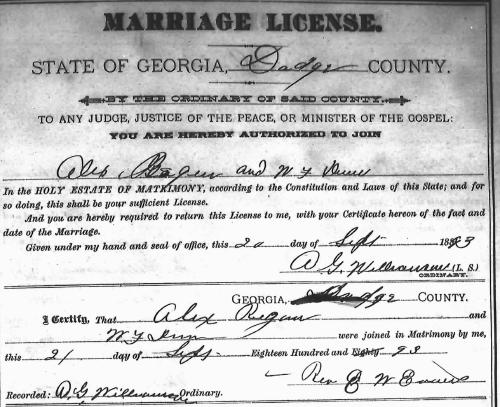 MARRIAGE LICENSE.
STATE OF GEORGIA, Dodge COUNTY.
BY THE ORDINARY OF SAID COUNTY.
TO ANY JUDGE, JUSTICE OF THE PEACE, OR MINISTER OF THE GOSPEL:
YOU ARE HEREBY AUTHORIZED TO JOIN
Alex and W F
In the HOLY ESTATE OF MATRIMONY, according to the Constitution and Laws of this State; and for
so doing, this shall be your sufficient License.
And you are hereby required to return this License to me, with your Certificate hereon of the fact and
date of the Marriage.
Given under my hand and seal of office, this 20 day of Sept 1893
A G Williamson (L. S.)
ORDINARY.
GEORGIA, Dodge COUNTY.
I Certify, That Alex and
W F were joined in Matrimony by me,
this 21 day of Sept Eighteen Hundred and Eighty 93
Rev E W
Recorded: A G Williamson Ordinary.